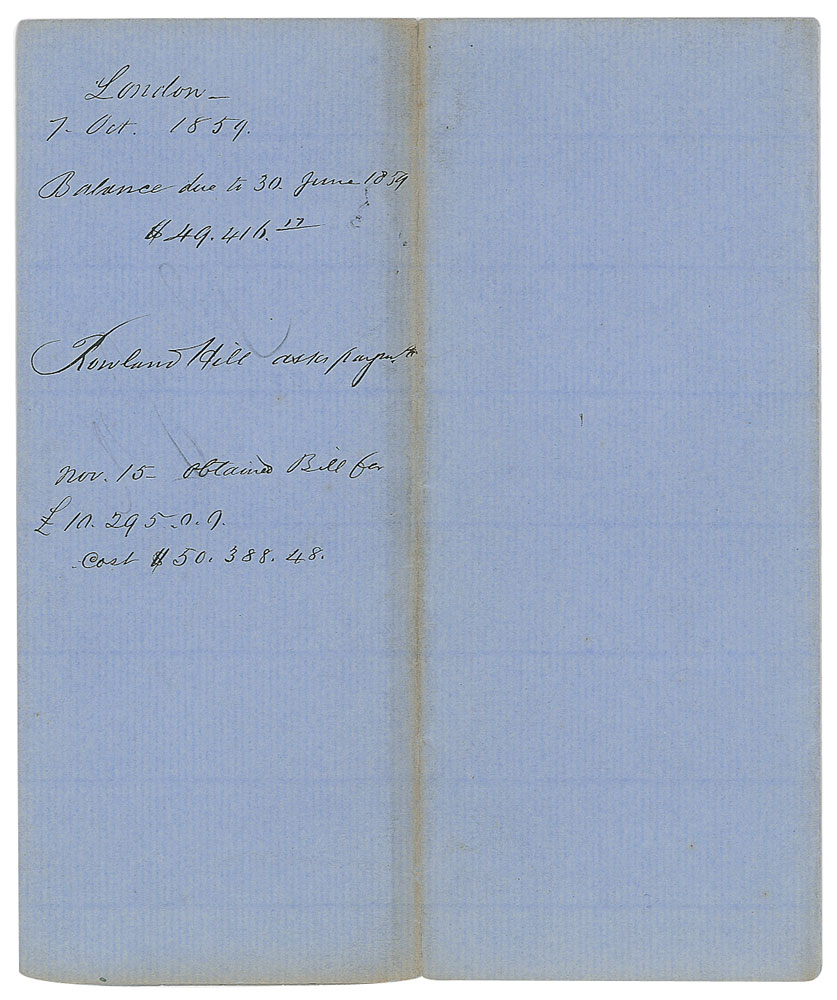 London –
7. Oct. 1859.
Balance due to 30. June 1859
$ 49.416.17
Rowland Hill asks paym't
Nov. 15 – Obtained Bill for
£ 10.295.0.9.
Cost $ 50.388.48.